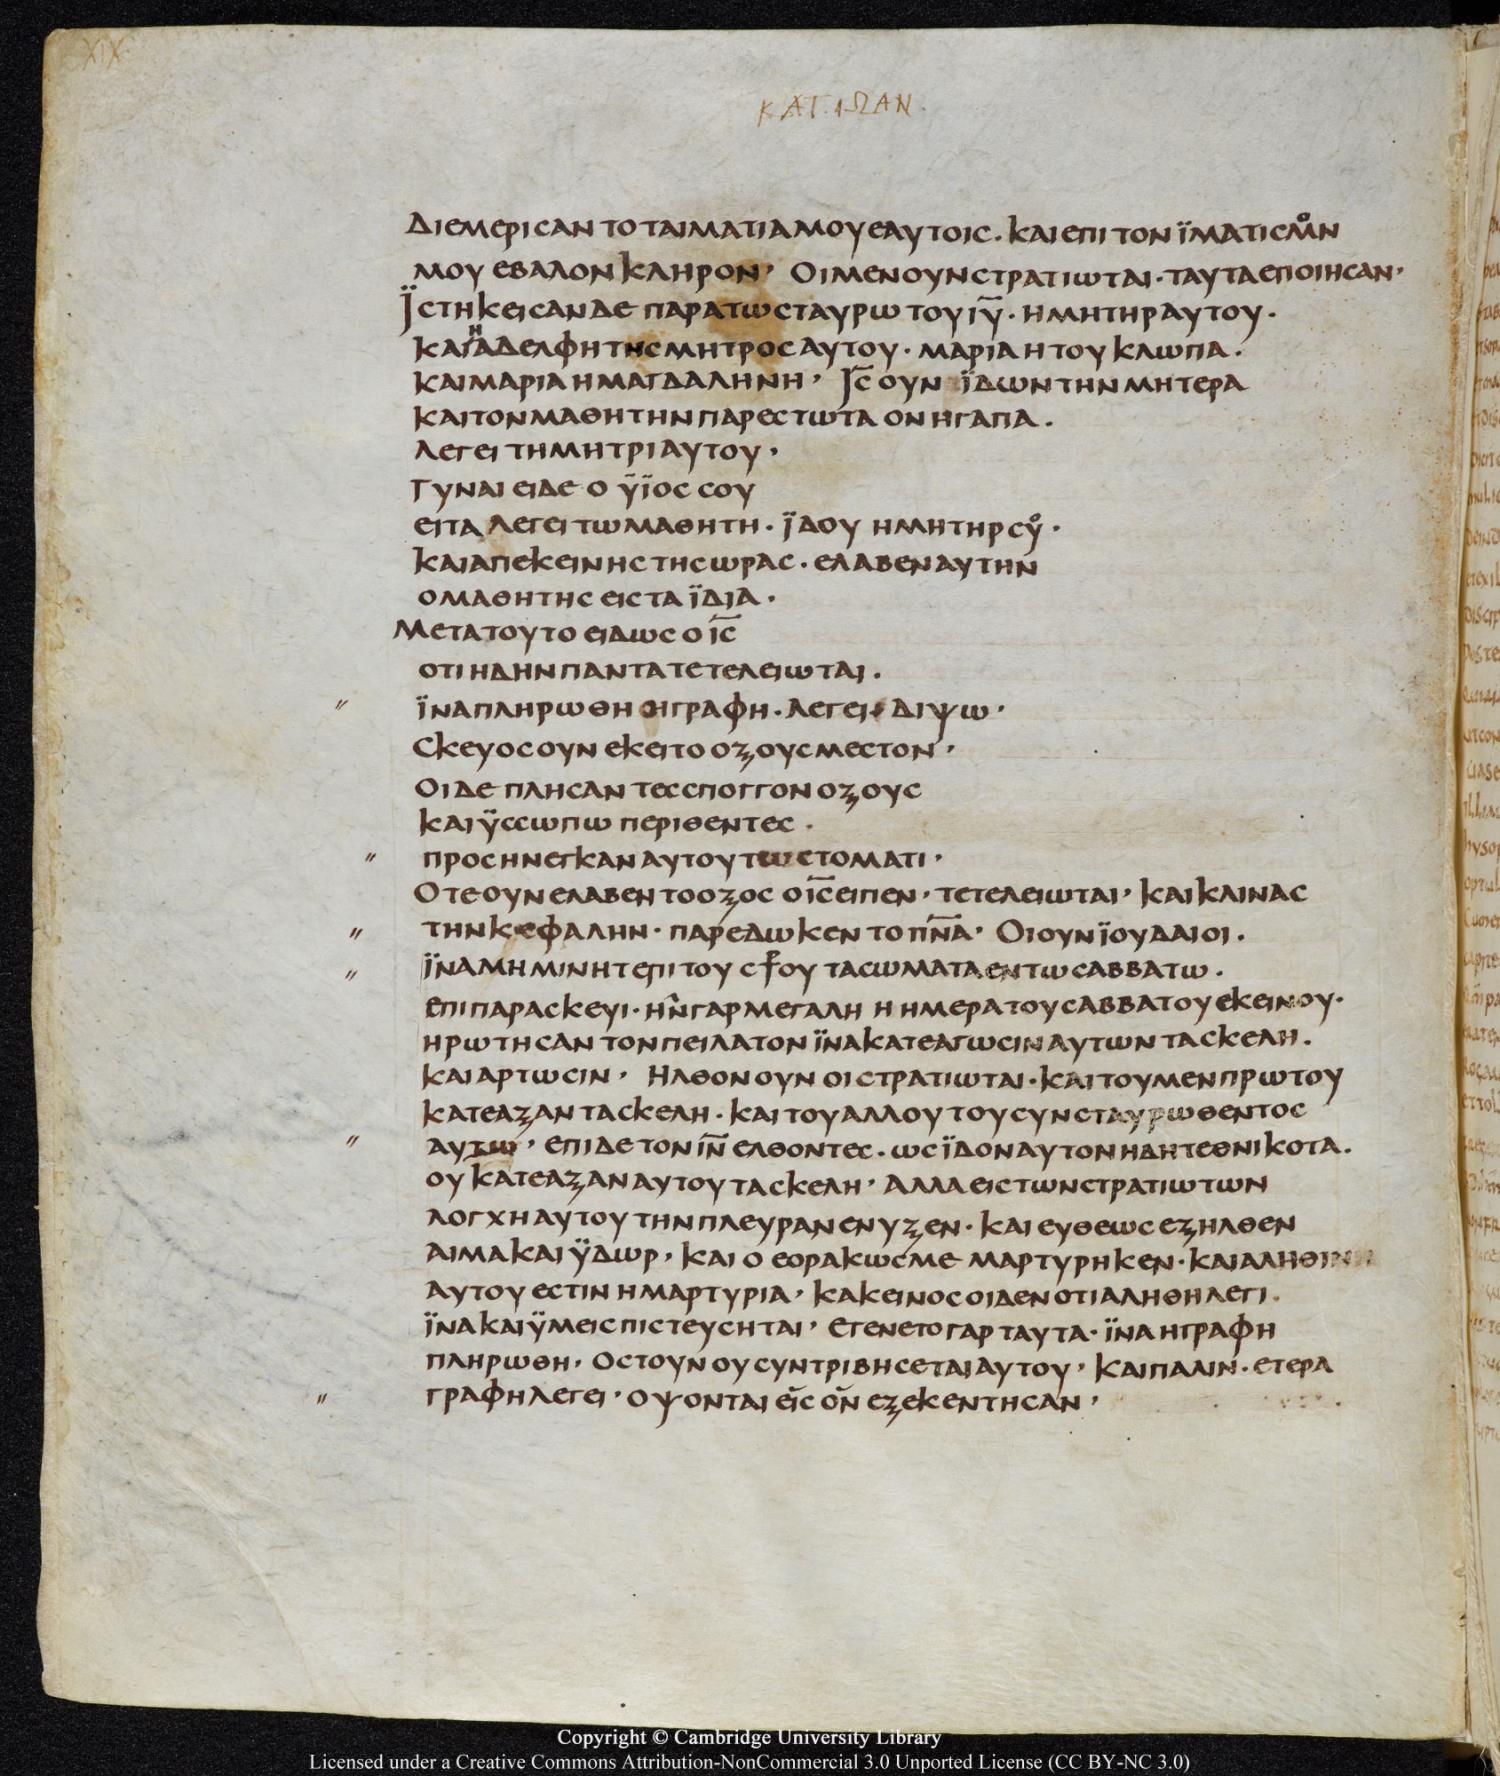 XIX
ΚΑΤ. ΙΩΑΝ.
ΔΙΕΜΕΡΙCΑΝΤΟΤΑΙΜΑΤΙΑΜΟΥΕΑΥΤΟΙC. ΚΑΙΕΠΙΤΟΝΪΜΑΤΙCΜΟΝ
ΜΟΥΕΒΑΛΟΝΚΛΗΡΟΝ· ΟΙΜΕΝΟΥΝCΤΡΑΤΙΩΤΑΙ·ΤΑΥΤΑΕΠΟΙΗCΑΝ·
ΪCΤΗΚΕΙCΑΝΔΕΠΑΡΑΤΩCΤΑΥΡΩΤΟΥΙ̅Υ̅·ΗΜΗΤΗΡΑΥΤΟΥ·
ΚΑΙΗΑΔΕΛΦΗΤΗCΜΗΤΡΟCΑΥΤΟΥ·ΜΑΡΙΑΗΤΟΥΚΛΩΠΑ·
ΚΑΙΜΑΡΙΑΗΜΑΓΔΑΛΗΝΗ· Ι̅C̅ΟΥΝ ΪΔΩΝΤΗΝΜΗΤΕΡΑ
ΚΑΙΤΟΝΜΑΘΗΤΗΝΠΑΡΕCΤΩΤΑΟΝΗΓΑΠΑ.
ΛΕΓΕΙΤΗΜΗΤΡΙΑΥΤΟΥ·
ΓΥΝΑΙΕΙΔΕΟΫΪΟCCΟΥ
ΕΙΤΑΛΕΓΕΙΤΩΜΑΘΗΤΗ·ΪΔΟΥΗΜΗΤΗΡCΟΥ·
ΚΑΙΑΠΕΚΕΙΝΗCΤΗCΩΡΑC·ΕΛΑΒΕΝΑΥΤΗΝ
ΟΜΑΘΗΤΗCΕΙCΤΑΪΔΙΑ·
ΜΕΤΑΤΟΥΤΟΕΙΔΩCΟΙ̅C̅
ΟΤΙΗΔΗΝΠΑΝΤΑΤΕΤΕΛΕΙΩΤΑΙ.
ΪΝΑΠΛΗΡΩΘΗ ΗΓΡΑΦΗ.ΛΕΓΕΙ· ΔΙΨΩ·
CΚΕΥΟCΟΥΝΕΚΕΙΤΟΟΞΟΥCΜΕCΤΟΝ·
ΟΙΔΕΠΛΗCΑΝΤΕCCΠΟΓΓΟΝΟΞΟΥC
ΚΑΙΫCCΩΠΩΠΕΡΙΘΕΝΤΕC·
ΠΡΟCΗΝΕΓΚΑΝΑΥΤΟΥΤΩCΤΟΜΑΤΙ·
ΟΤΕΟΥΝΕΛΑΒΕΝΤΟΟΞΟCΟΙ̅C̅ΕΙΠΕΝ·ΤΕΤΕΛΕΙΩΤΑΙ·ΚΑΙΚΛΙΝΑC
ΤΗΝΚΕΦΑΛΗΝ·ΠΑΡΕΔΩΚΕΝΤΟΠ̅Ν̅Α̅· ΟΙΟΥΝΪΟΥΔΑΙΟΙ.
ΪΝΑΜΗΜΙΝΗΤΕΠΙΤΟΥC⳨ΟΥΤΑCΩΜΑΤΑΕΝΤΩCΑΒΒΑΤΩ.
ΕΠΙΠΑΡΑCΚΕΥΙ·ΗΝΓΑΡΜΕΓΑΛΗΗΗΜΕΡΑΤΟΥCΑΒΒΑΤΟΥΕΚΕΙΝΟΥ·
ΗΡΩΤΗCΑΝΤΟΝΠΕΙΛΑΤΟΝΪΝΑΚΑΤΕΑΓΩCΙΝΑΥΤΩΝΤΑCΚΕΛΗ.
ΚΑΙΑΡΤΩCΙΝ· ΗΛΘΟΝΟΥΝΟΙCΤΡΑΤΙΩΤΑΙ·ΚΑΙΤΟΥΜΕΝΠΡΩΤΟΥ
ΚΑΤΕΑΞΑΝΤΑCΚΕΛΗ·ΚΑΙΤΟΥΑΛΛΟΥΤΟΥCΥΝCΤΑΥΡΩΘΕΝΤΟC
ΑΥΤΩ·ΕΠΙΔΕΤΟΝΙ̅Ν̅ΕΛΘΟΝΤΕC·ΩCΪΔΟΝΑΥΤΟΝΗΔΗΤΕΘΝΙΚΟΤΑ.
ΟΥΚΑΤΕΑΞΑΝΑΥΤΟΥΤΑCΚΕΛΗ·ΑΛΛΑΕΙCΤΩΝCΤΡΑΤΙΩΤΩΝ
ΛΟΓΧΗΑΥΤΟΥΤΗΝΠΛΕΥΡΑΝΕΝΥΞΕΝ·ΚΑΙΕΥΘΕΩCΕΞΗΛΘΕΝ
ΑΙΜΑΚΑΙΫΔΩΡ·ΚΑΙΟΕΟΡΑΚΩCΜΕΜΑΡΤΥΡΗΚΕΝ·ΚΑΙΑΛΗΘΙΝΗ
ΑΥΤΟΥΕCΤΙΝΗΜΑΡΤΥΡΙΑ·ΚΑΚΕΙΝΟCΟΙΔΕΝΟΤΙΑΛΗΘΗΛΕΓΙ.
ΪΝΑΚΑΙΫΜΕΙCΠΙCΤΕΥCΗΤΑΙ·ΕΓΕΝΕΤΟΓΑΡΤΑΥΤΑ·ΪΝΑΗΓΡΑΦΗ
ΠΛΗΡΩΘΗ·ΟCΤΟΥΝΟΥCΥΝΤΡΙΒΗCΕΤΑΙΑΥΤΟΥ·ΚΑΙΠΑΛΙΝ·ΕΤΕΡΑ
ΓΡΑΦΗΛΕΓΕΙ·ΟΨΟΝΤΑΙΕΙCΟΝΕΞΕΚΕΝΤΗCΑΝ·
Copyright © Cambridge University Library
Licensed under a Creative Commons Attribution-NonCommercial 3.0 Unported License (CC BY-NC 3.0)